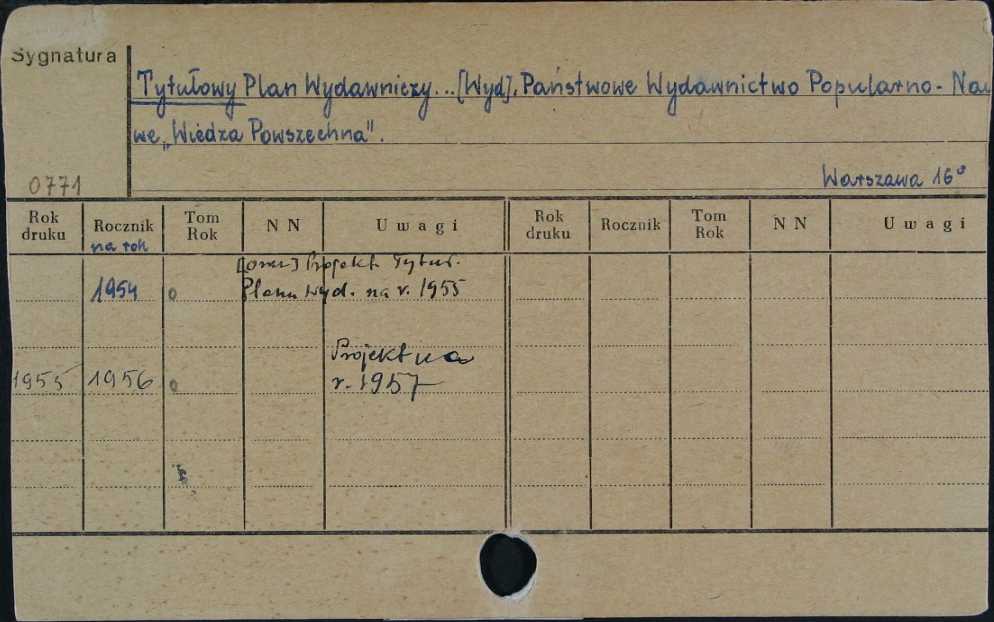 Sygnatura
Tytułowy Plan Wydawniczy... [Wyd]. Państwowe Wydawnictwo Popularno-Nau
we „Wiedza Powszechna".
0771
Warszawa 16°
Rok druku Rocznik Tom Rok NN Uwagi Rok druku Rocznik Tom Rok NN Uwagi
na rok
[oraz] Projekt Tytuł.
1954 o Planu Wyd. na r. 1955
Projekt na
1955 1956 o r. 1957